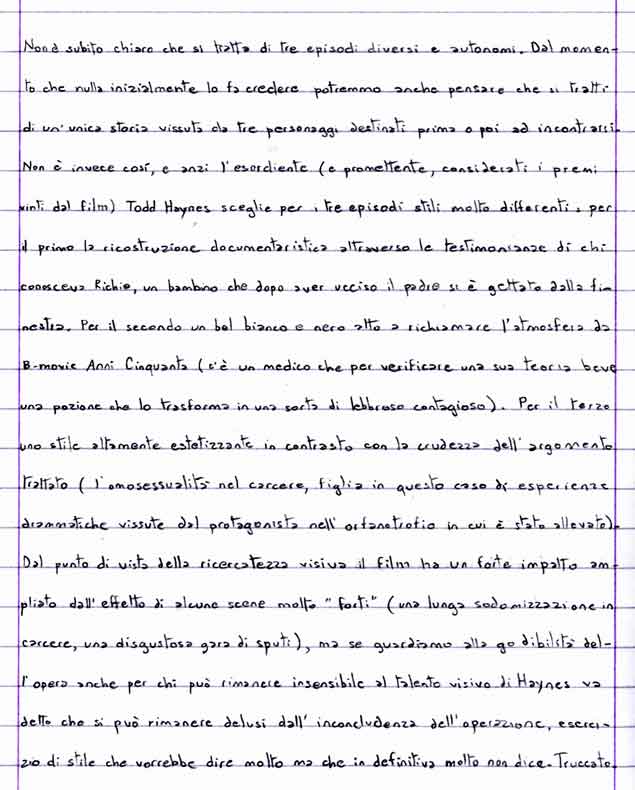 Non è subito chiaro che si tratta di tre episodi diversi e autonomi. Dal momen-
to che nulla inizialmente lo fa credere potremmo anche pensare che si tratti
di un'unica storia vissuta da tre personaggi destinati prima o poi ad incontrarsi.
Non è invece così, e anzi l'esordiente (e promettente, considerati i premi
vinti dal film) Todd Haynes sceglie per i tre episodi stili molto differenti: per
il primo la ricostruzione documentaristica attraverso le testimonianze di chi
conosceva Richie, un bambino che dopo aver ucciso il padre si è gettato dalla fi-
nestra. Per il secondo un bel bianco e nero atto a richiamare l'atmosfera da
B-movie Anni Cinquanta (c'è un medico che per verificare una sua teoria beve
una pozione che lo trasforma in una sorta di lebbroso contagioso). Per il terzo
uno stile altamente estetizzante in contrasto con la crudezza dell'argomento
trattato (l'omosessualità nel carcere, figlia in questo caso di esperienze
drammatiche vissute dal protagonista nell'orfanotrofio in cui è stato allevato).
Dal punto di vista della ricercatezza visiva il film ha un forte impatto am-
pliato dall'effetto di alcune scene molto "forti" (una lunga sodomizzazione in
carcere, una disgustosa gara di sputi), ma se guardiamo alla godibilità del-
l'opera anche per chi può rimanere insensibile al talento visivo di Haynes va
detto che si può rimanere delusi dall'inconcludenza dell'operazione, eserci-
zio di stile che vorrebbe dire molto ma che in definitiva molto non dice. Truccato